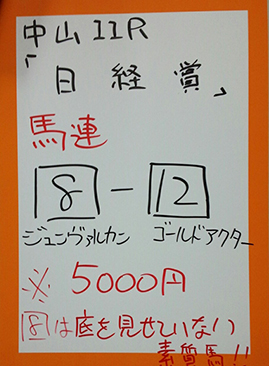 中山11R
「日経賞」
馬連
8-12
ジュンヴァルカン ゴールドアクター
※5000円
8は底を見せていない
素質馬!!